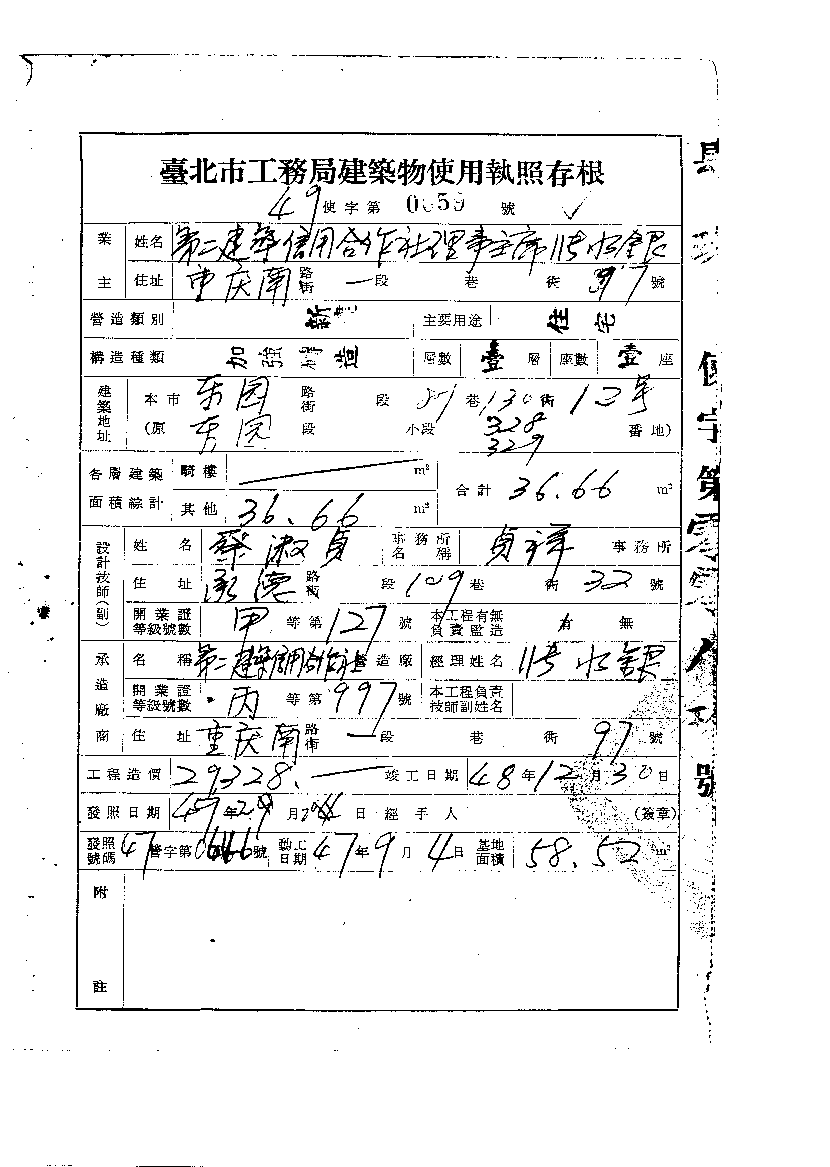 臺北市工務局建築物使用執照存根
49使字第0059號
業主 姓名 第二建築信用合作社理事主席許水銀
住址 重庆南路街 一段 巷 衖 97號
營造類別 新 主要用途 住宅
構造種類 加強磚造 層數 壹層 座數 壹座
建築地址 本市 东园路街 段 巷130衖12号
(原 东园段 小段 328 329 番地)
各層建築面積綜計 騎樓 m² 合計 36.66 m²
其他 36.66 m²
設計技師(副) 姓名 蔡淑貞 事務所名稱 貞祥事務所
住址 承德路街 段109巷 衖32號
開業證等級號數 甲等第127號 本工程有無負責監造 有 無
承造廠商 名稱 第二建築信用合作社營造廠 經理姓名 許水銀
開業證等級號數 丙等第997號 本工程負責技師副姓名
住址 重庆南路街 一段 巷 衖 97號
工程造價 29328.— 竣工日期 48年12月30日
發照日期 年 月 日 經手人 (簽章)
發照號碼 47營字第 號 動工日期 47年9月4日 基地面積 58.52 m²
附註
使字第零零
號